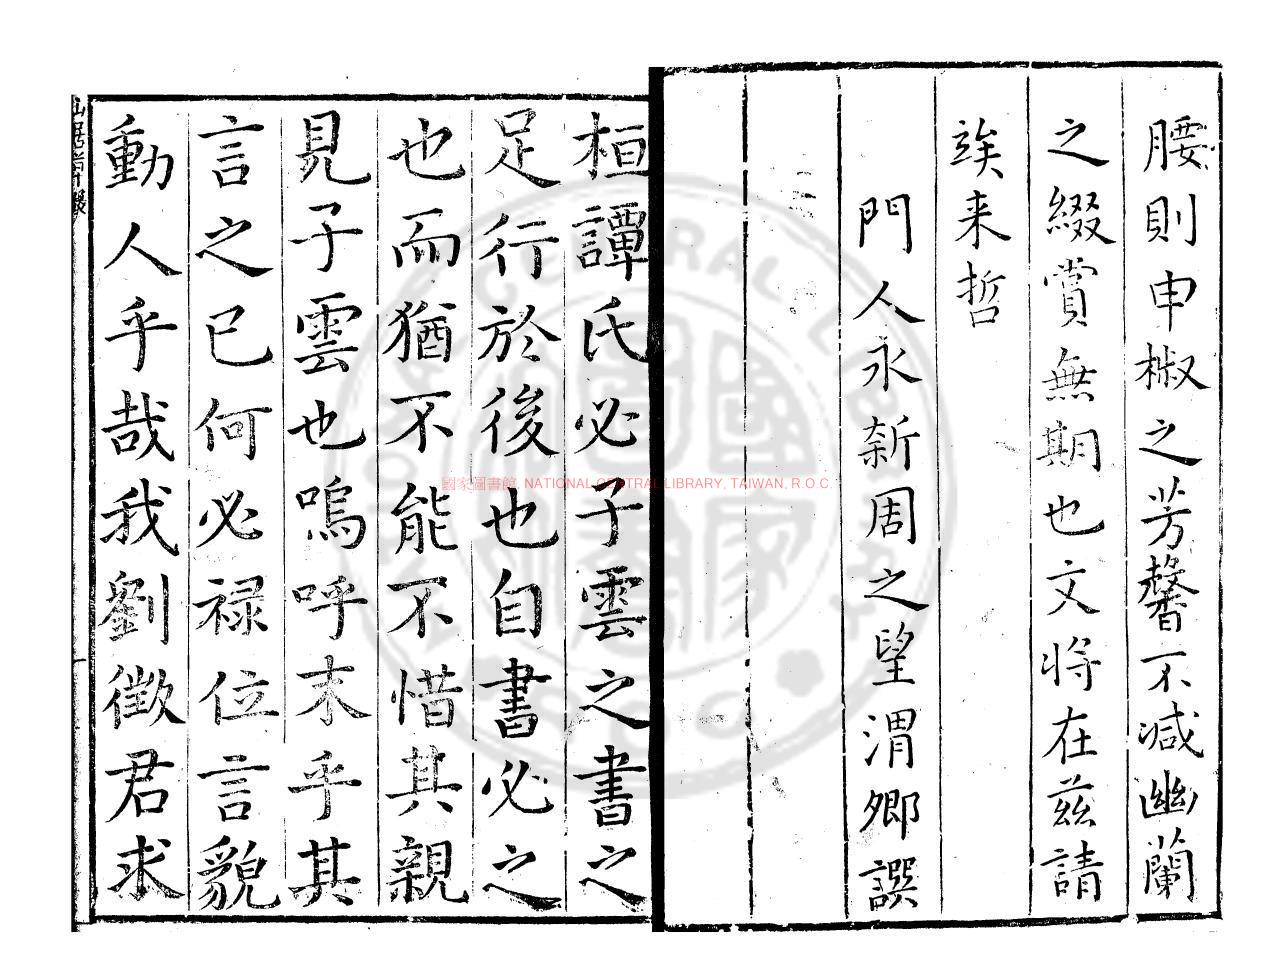 腰則申椒之芳馨不減幽蘭
之綴賞無期也文將在茲請
竢来哲
門人永新周之望渭卿譔
桓譚氏必子雲之書之
足行於後也自書必之
也而猶不能不惜其親
見子雲也嗚呼末乎其
言之已何必禄位言貌
動人乎哉我劉徵君求
國家圖書館, NATIONAL CENTRAL LIBRARY, TAIWAN, R.O.C.